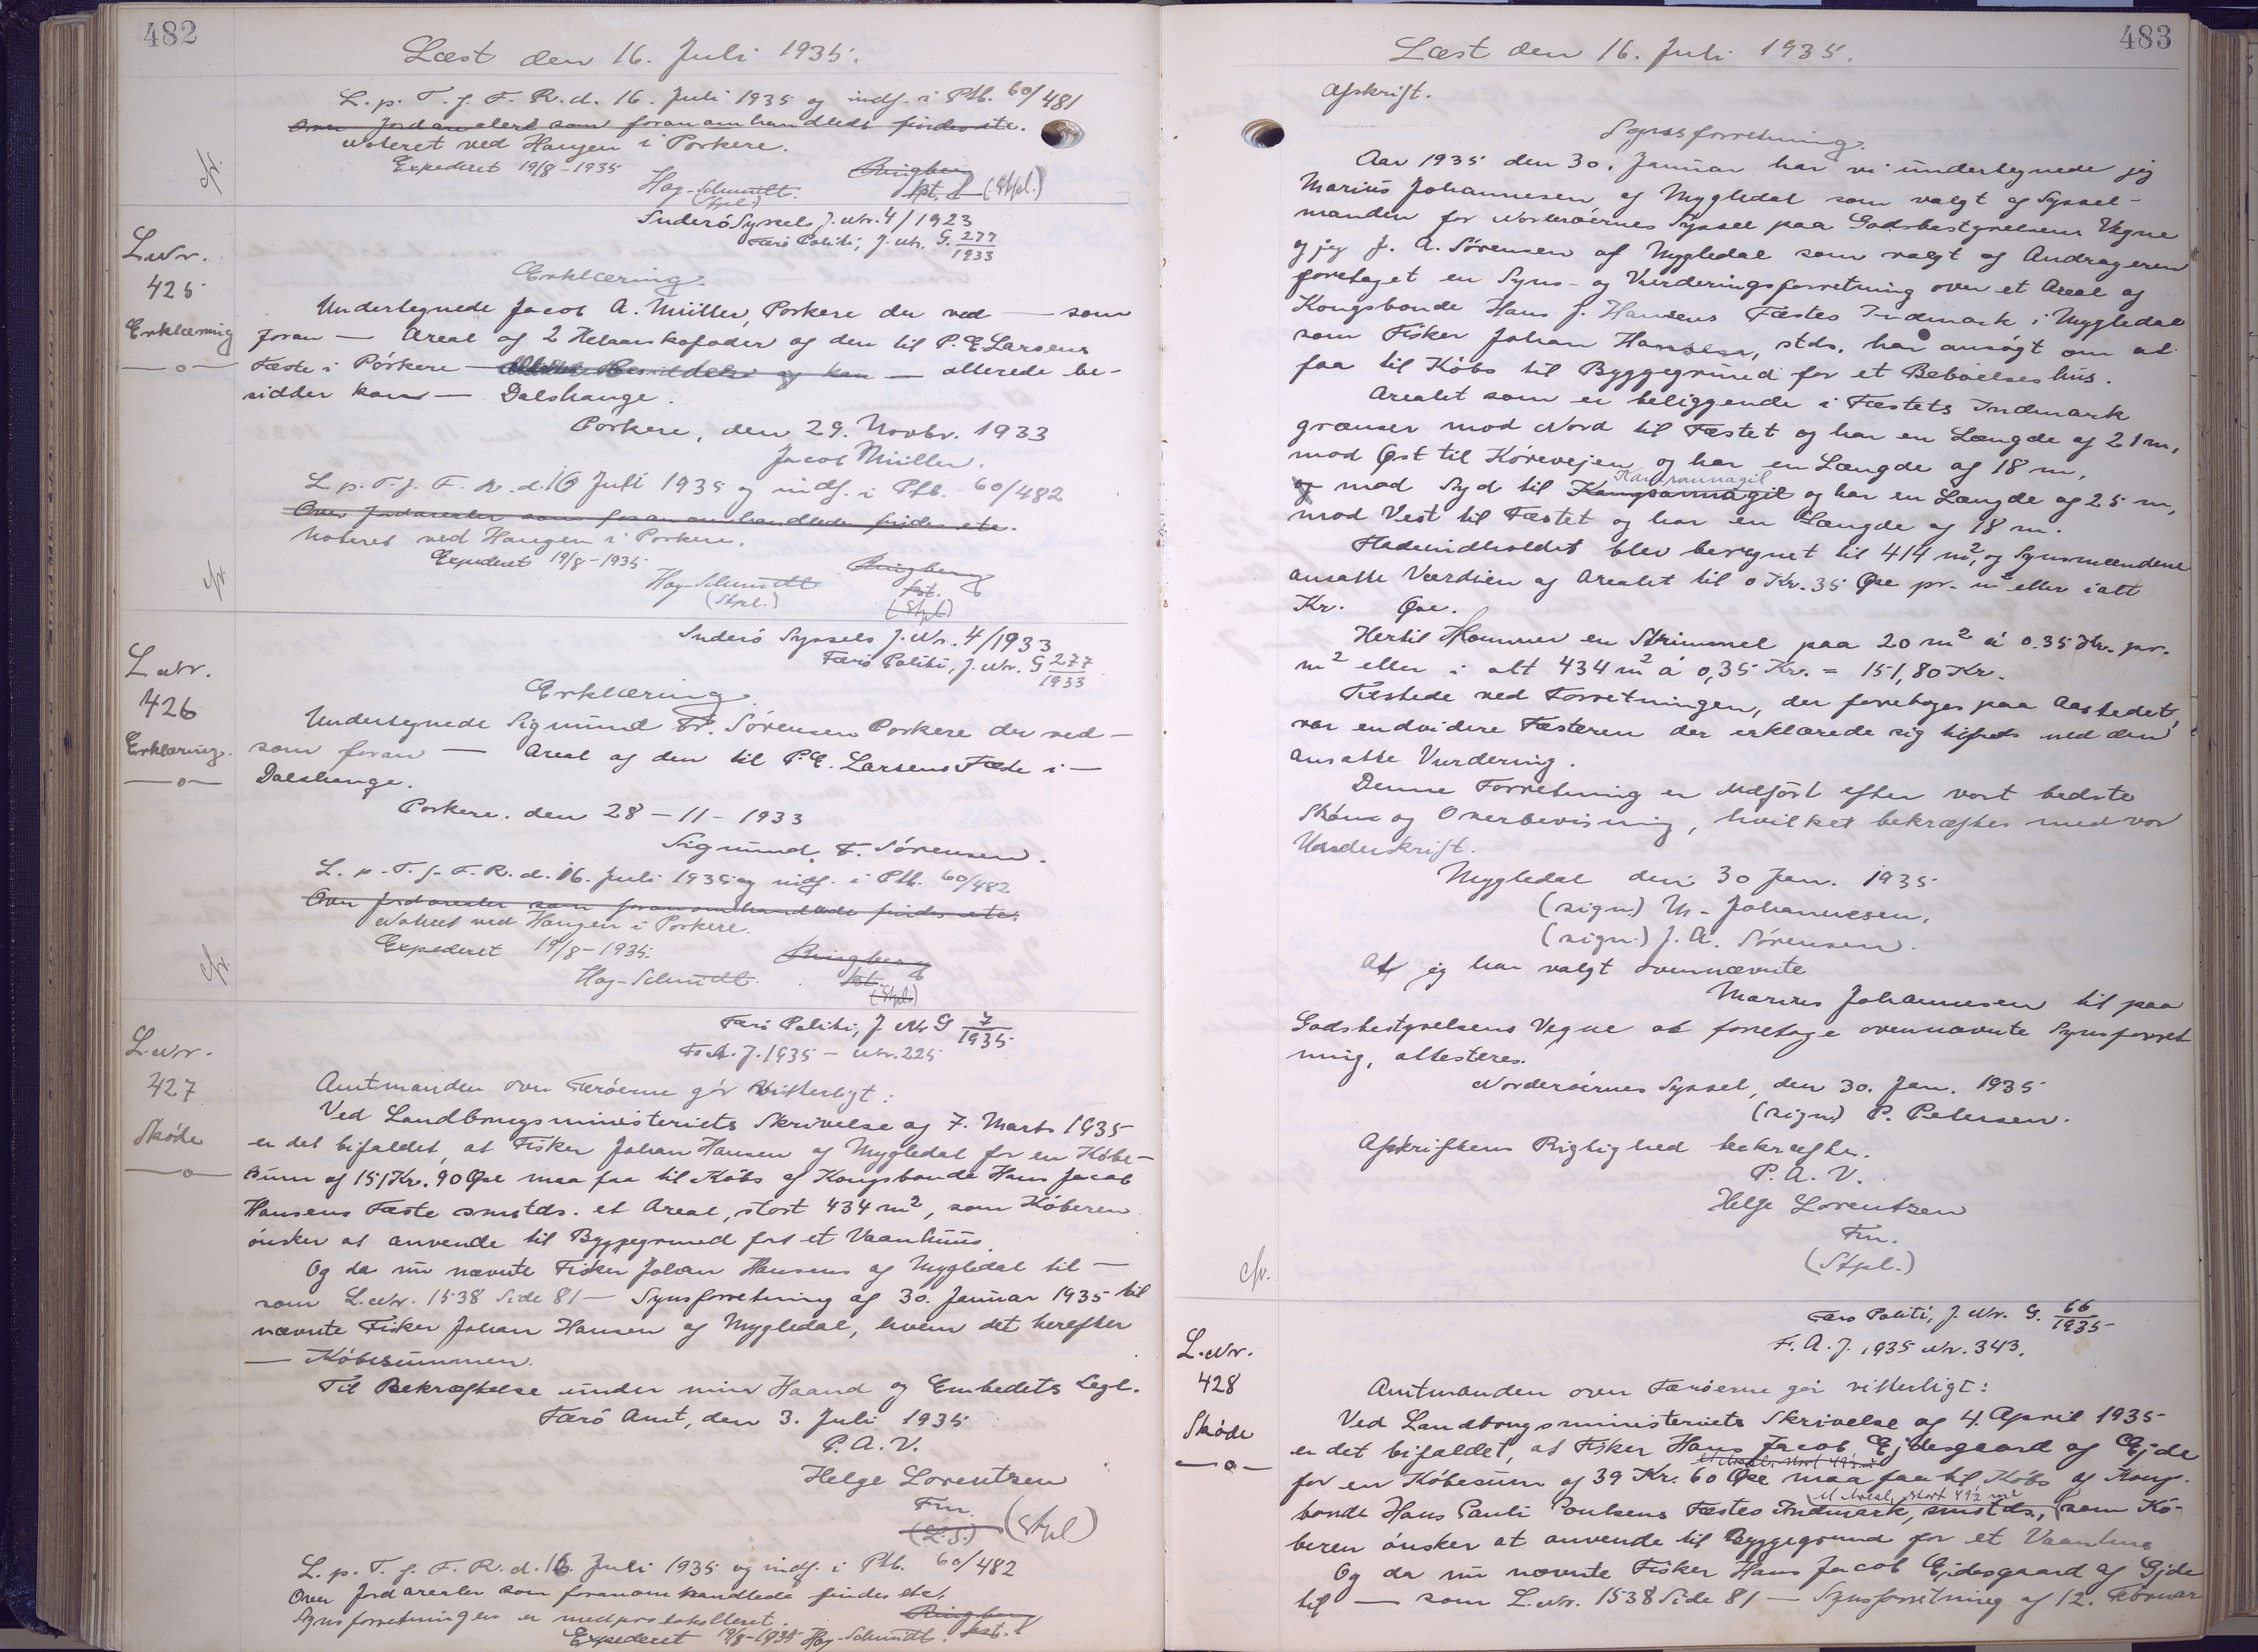 482
Læst den 16. Juli 1935.
L. p. T. f. F. R. d. 16. Juli 1935 og indf. i Ptb. 60/481
Over Jordarealer som foran omhandlede findes etc.
Noteret ved Haugen i Porkere.
Expederet 19/8-1935
Hag-Schmidt. Ringberg
(Stpl.) fst. (Stpl.)
cfr.
Suderö Syssels J. Nr. 4/1923
Færö Politi, J. Nr. G. 277/1933
L Nr.
425
Erklæring
Erklæring.
Undertegnede Jacob A. Müller, Porkere der ved — som
foran — Areal af 2 Helaarskofoder af den til P. E Larsens
Fæste i Pórkere — — allerede be-
sidder kan — Dalshange.
Porkere, den 29. Novbr. 1933
Jacob Müller.
L. p. T. f. F. R. d. 16 Juli 1935 og indf. i Ptb. 60/482
Over Jordarealer som foran omhandlede findes etc.
Noteret ved Haugen i Porkere.
Expederet 19/8-1935
Hag-Schmidt Ringberg
(Stpl.) fst.
(Stpl)
cfr.
Suderö Syssels J. Nr. 4/1933
Færö Politi, J. Nr. G 277/1933
L Nr.
426
Erklæring.
Erklæring.
Undertegnede Sigmund Fr. Sörensen Porkere der ved —
som foran — Areal af den til P. E. Larsens Fæste i —
Dalshange.
Porkere. den 28-11-1933
Sigmund. F. Sörensen.
L. p. T. f. F. R. d. 16. Juli 1935 og indf. i Ptb. 60/482
Over Jordarealer som foranomhandlede findes etc.
Noteret ved Haugen i Porkere.
Expederet 19/8-1935.
Hag-Schmidt. Ringberg
fst.
(Stpl)
cfr.
Færö Politi, J. Nr G 7/1935
F. A. J. 1935 - Nr. 225
L. Nr.
427
Skøde
Amtmanden over Færöerne gör Vitterligt:
Ved Landbrugsministeriets Skrivelse af 7. Marts 1935
er det bifaldet, at Fisker Johan Hansen af Mygledal for en Købe-
sum af 151 Kr. 90 Øre maa faa til Købs af Kongsbonde Hans Jacob
Hansens Fæste smstds. et Areal, stort 434 m², som Køberen
ønsker at anvende til Byggegrund for et Vaanhuus.
Og da nu nævnte Fisker Johan Hansens af Mygledal til —
som L. Nr. 1538 Side 81 — Synsforretning af 30. Januar 1935 til
nævnte Fisker Johan Hansen af Mygledal, hvem det herefter
— Købesummen.
Til Bekræftelse under min Haand og Embedets Segl.
Færö Amt, den 3. Juli 1935
P. A. V.
Helge Lorentzen
Fm.
(L.S.) (Stpl)
L. p. T. f. F. R. d. 16. Juli 1935 og indf. i Ptb. 60/482
Over Jordarealer som foranomhandlede findes etc.
Synsforretningen er medprotokolleret.
Expederet 19/8-1935 Hag-Schmidt. Ringberg fst.
483
Læst den 16. Juli 1935.
Afskrift.
Synsforretning.
Aar 1935 den 30. Januar har vi undertegnede jeg
Marius Johannesen af Mygledal som valgt af Syssel-
manden for Norderöernes Syssel paa Godsbestyrelsens Vegne
og jeg J. A. Sörensen af Mygledal som valgt af Andrageren
foretaget en Syns- og Vurderingsforretning over et Areal af
Kongsbonde Hans J. Hansens Fæstes Indmark i Mygledal
som Fisker Johan Hansen, stds. har ansøgt om at
faa til Købs til Byggegrund for et Beboelseshus.
Arealet som er beliggende i Fæstets Indmark
grænser mod Nord til Fæstet og har en Længde af 21 m,
mod Øst til Körevejen og har en Længde af 18 m,
og mod Syd til og har en Længde af 25 m,
mod Vest til Fæstet og har en Længde af 18 m.
Fladeindholdet blev beregnet til 414 m², og Synsmændene
ansatte Værdien af Arealet til 0 Kr. 35 Øre pr. m² eller ialt
Kr. Øre.
Hertil kommer en Strimmel paa 20 m² á 0.35 Kr. pr.
m² eller i alt 434 m² á 0,35 Kr. = 151,80 Kr.
Tilstede ved Forretningen, der foretoges paa Aastedet,
var endvidere Fæsteren der erklærede sig tilfreds med den
ansatte Vurdering.
Denne Forretning er udfört efter vort bedste
Skøn og Overbevisning, hvilket bekræftes med vor
Underskrift.
Mygledal den 30 Jan. 1935
(sign.) M. Johannesen.
(sign.) J. A. Sörensen.
At jeg har valgt ovennævnte
Marius Johannesen til paa
Godsbestyrelsens Vegne at foretage ovennævnte Synsforret
ning, attesteres.
Norderöernes Syssel, den 30. Jan. 1935
(sign.) P. Petersen.
Afskriftens Rigtighed bekræftes.
P. A. V.
Helge Lorentzen
Fm.
(Stpl.)
cfr.
Færö Politi, J. Nr. G. 66/1935
F. A. J. 1935 Nr. 343.
L. Nr.
428
Skøde
Amtmanden over Færöerne gör vitterligt:
Ved Landbrugsministeriets Skrivelse af 4. April 1935
er det bifaldet, at Fisker Hans Jacob Ejdesgaard af Ejde
for en Købesum af 39 Kr. 60 Øre maa faa til Købs af Kongs-
bonde Hans Pauli Poulsens Fæstes Indmark, smstds., som Kö-
beren ønsker at anvende til Byggegrund for et Vaanhus
Og da nu nævnte Fisker Hans Jacob Ejdesgaard af Ejde
til — som L. Nr. 1538 Side 81 — Synsforretning af 12. Februar